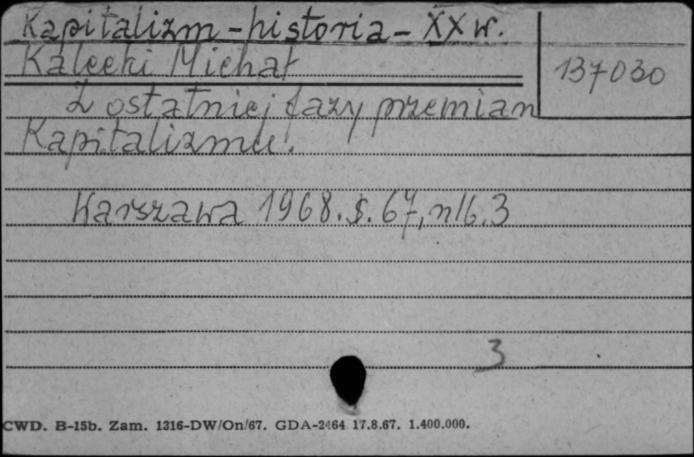 Kapitalizm - historia - XX w.
Kalecki Michał
137030
Z ostatniej fazy przemian
Kapitalizmu.
Warszawa 1968. s. 67, nlb. 3
3
CWD. B-15b. Zam. 1316-DW/On/67. GDA-2464 17.8.67. 1.400.000.